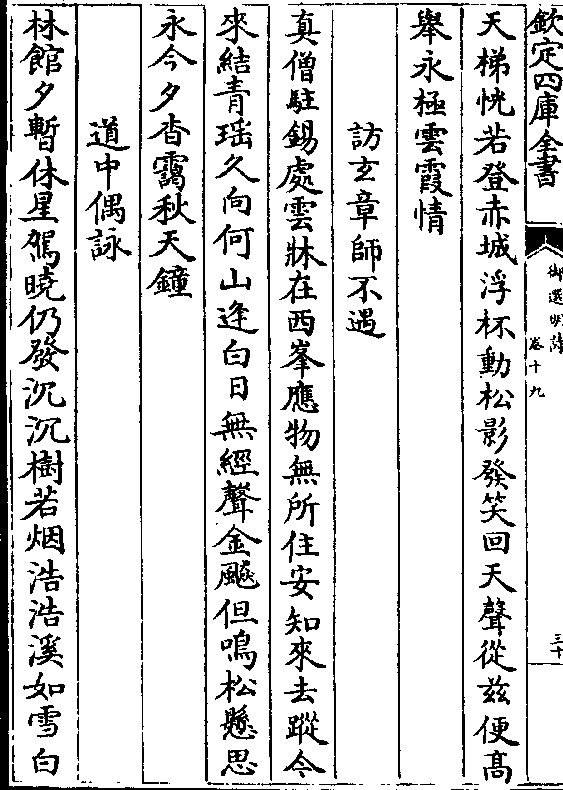 欽定四庫全書
御選明詩
卷十九
三十
天梯恍若登赤城浮杯動松影發笑回天聲從兹便髙
舉永極雲霞情
訪玄章師不遇
真僧駐錫處雲牀在西峯應物無所住安知來去蹤今
來結青瑶久向何山逢白日無經聲金飈但鳴松懸思
永今夕杳靄秋天鐘
道中偶詠
林館夕暫休星駕曉仍發沉沉樹若烟浩浩溪如雪白